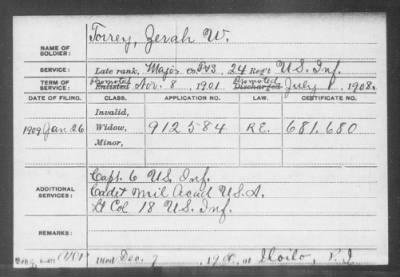 Torrey, Zerah W.
NAME OF SOLDIER:
SERVICE: Late rank, Major 24 Reg't U.S. Inf.
TERM OF SERVICE: Promoted Enlisted Nov. 8, 1901 Promoted Discharged July 1, 1908.
DATE OF FILING. CLASS. APPLICATION NO. LAW. CERTIFICATE NO.
Invalid,
1909 Jan. 26 Widow, 912584 R.E. 681.680
Minor,
ADDITIONAL SERVICES:
Capt. 6 U.S. Inf.
Cadet Mil Acad U.S.A.
Lt Col 18 U.S. Inf.
REMARKS:
Died Dec. 7, 1908, at Iloilo, P.I.